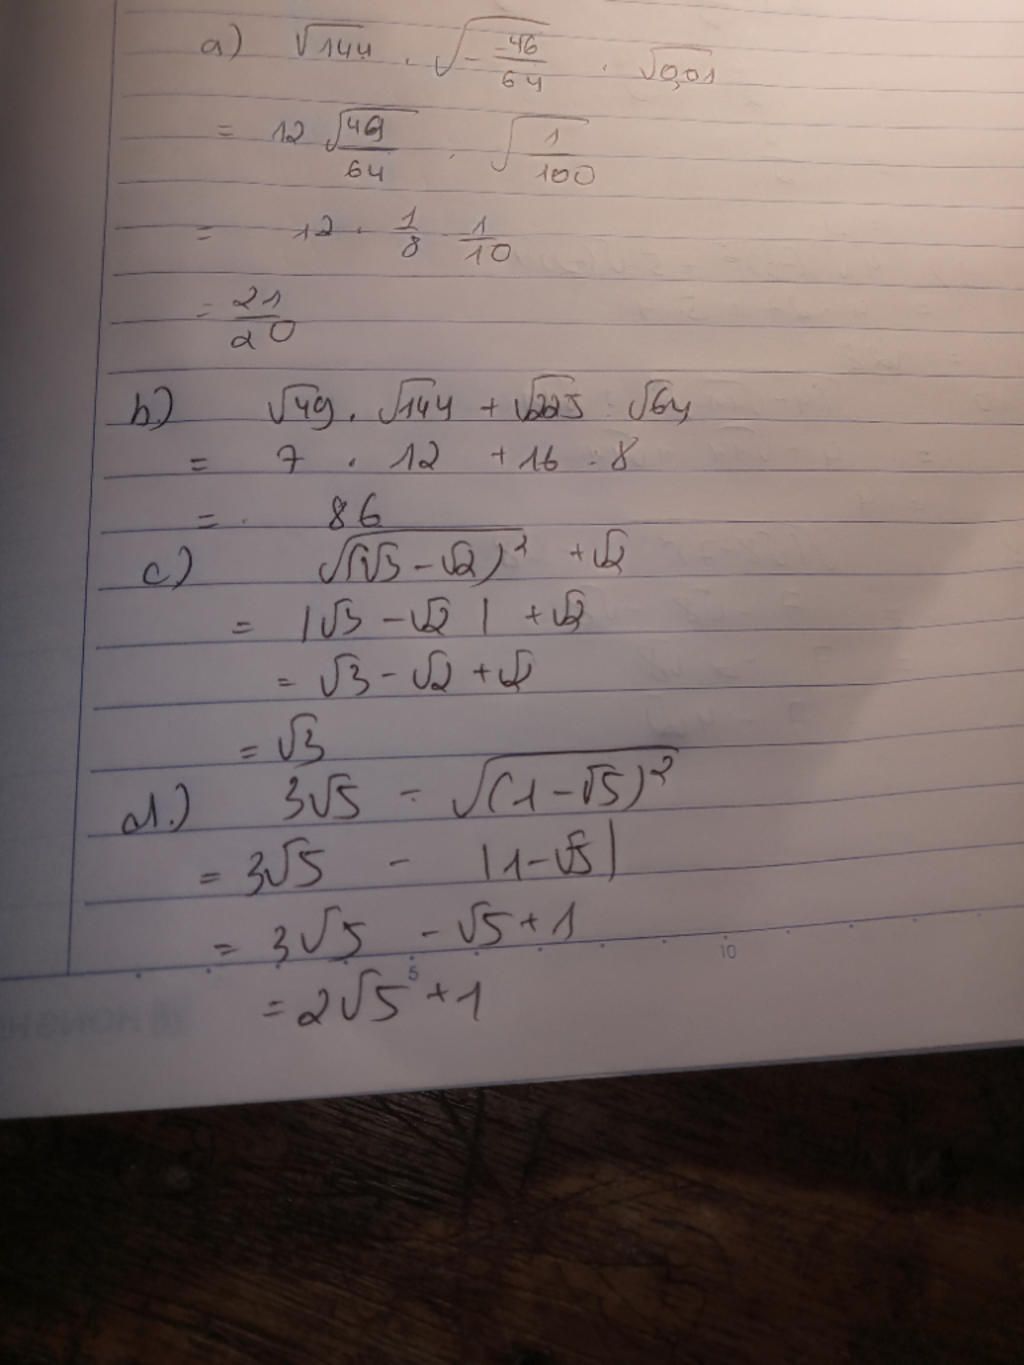 a) √144 . √(-  -46/64) . √0,01
= 12 √49/64 . √(1/100)
= 12 . 1/8 1/10
= 21/20
b) √49 . √144 + √225 : √64
= 7 . 12 + 16 : 8
= 86
c) √(√3 - √2)² + √2
= |√3 - √2| + √2
= √3 - √2 + √2
= √3
d.) 3√5 - √(1-√5)²
= 3√5 - |1-√5|
= 3√5 - √5 + 1
5 10
= 2√5 + 1